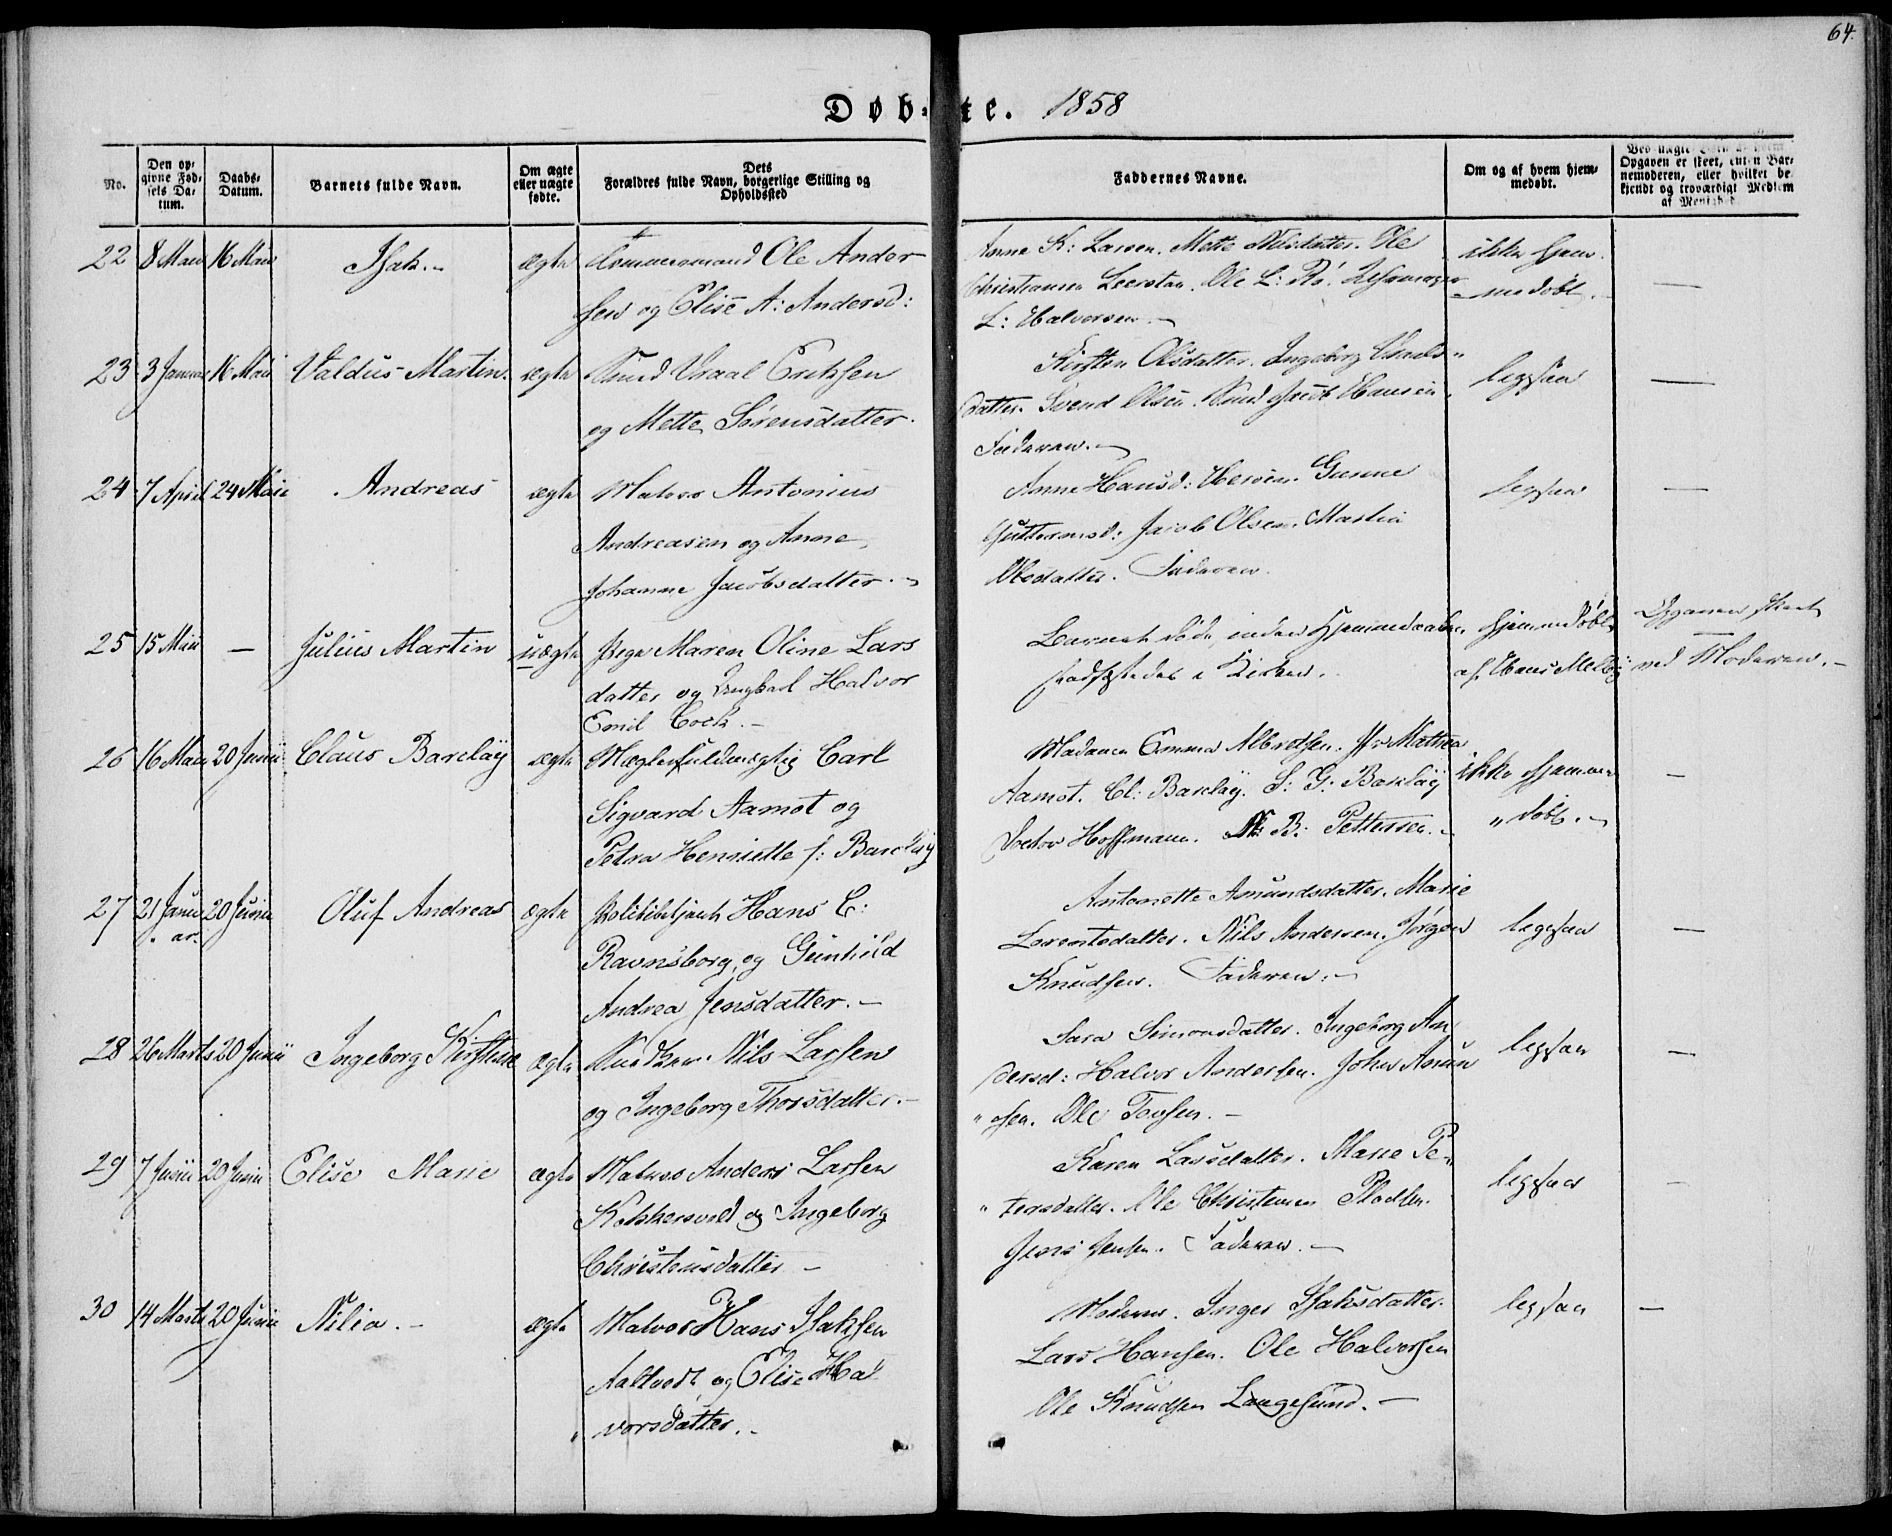 64.
Døb-te. 1858
No.
Den op-
givne Fød-
sels Da-
tum.
Daabs-
Datum.
Barnets fulde Navn.
Om ægte
eller uægte
fødte.
Dets
Forældres fulde Navn, borgerlige Stilling og
Opholdssted
Faddernes Navne.
Om og af hvem hjem-
medøbt.
Opgaven er skeet, enten Bar-
nemoderen, eller hvilket be-
kjendt og troværdigt Medlem
22 8 Mai 16 Mai Isak.- ægte Tømmermand Ole Ander
sen og Elise A: Andersd:
Anne K: Larsen. Mette Nilsdatter. Ole
Christiansen Ole L: Rø.
L: Halvorsen.-
ikke hjem-
medøbt.-
—
23 3 Januar 16 Mai Valdus Martin. ægte Knud Vraal Eriksen
og Mette Sørensdatter.
Kirsten Olsdatter. Ingeborg Knuds-
datter. Svend Olsen. Knud Jacob Hansen.
Faderen.-
ligesaa
—
24 7 April 24 Mai Andreas ægte Matros Antonius
Andreasen og Anne
Johanne Jacobsdatter.-
Anne Hansd: Iversen. Gunne
Guttormsd: Jacob Olsen. Martia
Olsdatter. Faderen.
ligesaa
—
25 15 Mai — Julius Martin uægte Pige Maren Oline Lars
datter og Ungkarl Halvor
Emil Cock.-
Barnet døde, inden Hjemmedaaben
stadfæstedes i Kirken.
Hjemmedøbt
af Hans Melby
Opgaven skeet
ved Moderen.-
26 16 Mai 20 Junii Claus Barclay ægte Mæglerfuldmægtig Carl
Sigvard Aamot og
Petra Henriette f: Barclay
Madame Emma Albretsen. Jfr Mathea
Aamot. Cl: Barclay. S: G: Barclay
Doctor Hoffmann. N: B: Pettersen.-
ikke hjemme
" døbt.-
—
27 21 Janu 20 Junii Oluf Andreas ægte Politibetjent Hans C:
" ar.
Ravnsborg, og Gunhild
Andrea Jensdatter.-
Antonette Amundsdatter. Marie
Lorentsdatter. Nils Andersen. Jørgen
Knudsen. Faderen.-
ligesaa
—
28 26 Marts 20 Junii Ingeborg Kirstine ægte Nils Larsen
og Ingeborg Thorsdatter.-
Sara Simonsdatter. Ingeborg An
dersd: Halvor Andersen. John Amun
" Ole Tovsen.-
ligesaa
—
29 7 Junii 20 Junii Elise Marie ægte Matros Anders Larsen
Kokkersvold og Ingeborg
Christensdatter -
Karen Larsdatter. Marie Pe-
" tersdatter. Ole Christensen
Jens Jensen. Faderen.-
ligesaa
-
30 14 Marts 20 Junii Nilia.- ægte Matros Hans Isaksen
Aaltvedt og Elise Hal
" vorsdatter.-
Moderen. Inger Isaksdatter.
Lars Hansen. Ole Halvorsen
Ole Knudsen Langesund.-
ligesaa
—